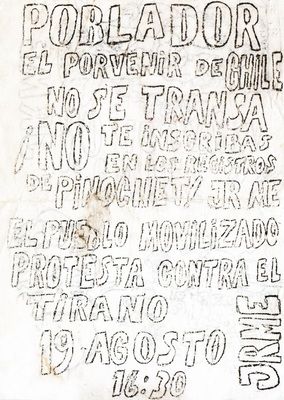 POBLADOR
EL PORVENIR DE CHILE
NO SE TRANSA
¡NO TE iNSCRiBAS
EN LOS REGISTROS
DE PiNOCHET Y JR ME
EL PUEBLO MOViLiZADO
PROTESTA CONTRA EL
TiRANO
19 AGOSTO
16:30
JRME